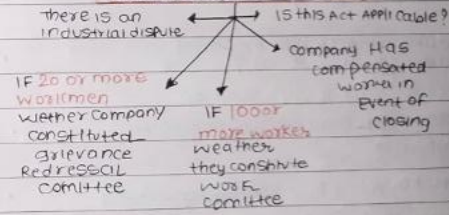 there is an
industrial dispute
Is this Act Applicable?
company Has
compensated
worker in
Event of
closing
IF 20 or more
workmen
wether company
constituted
grievance
Redressal
comittee
IF 100 or
more worker
weather
they constitute
work
comittee